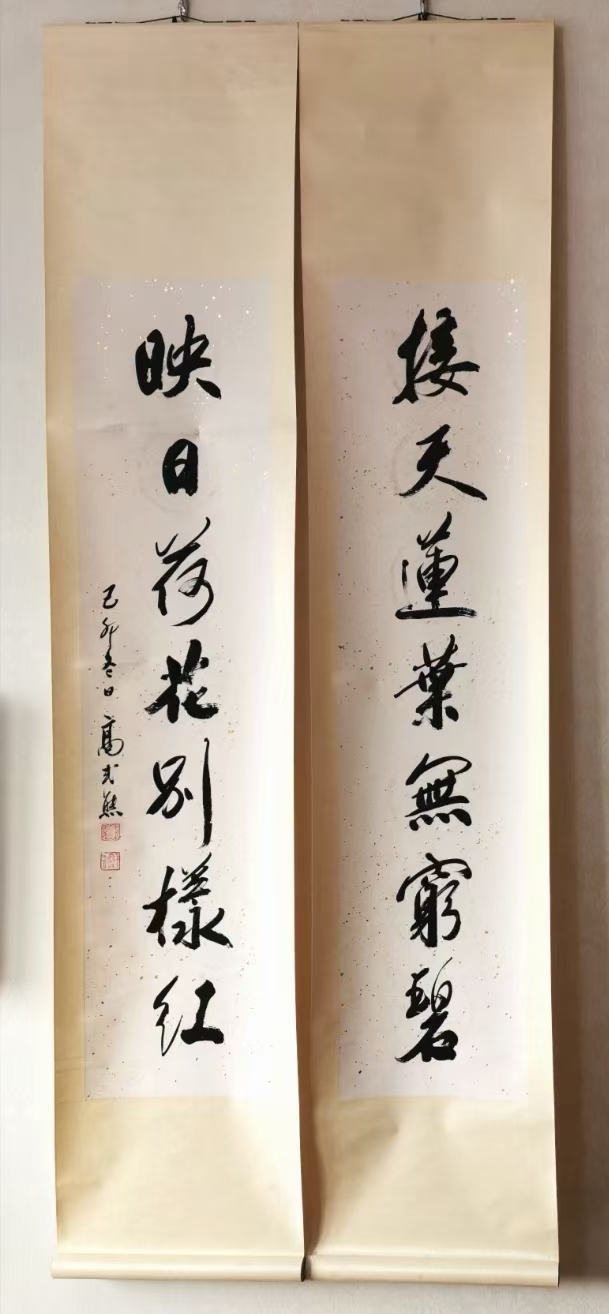 接天蓮葉無窮碧
映日荷花别樣红
己卯冬日 高式熊